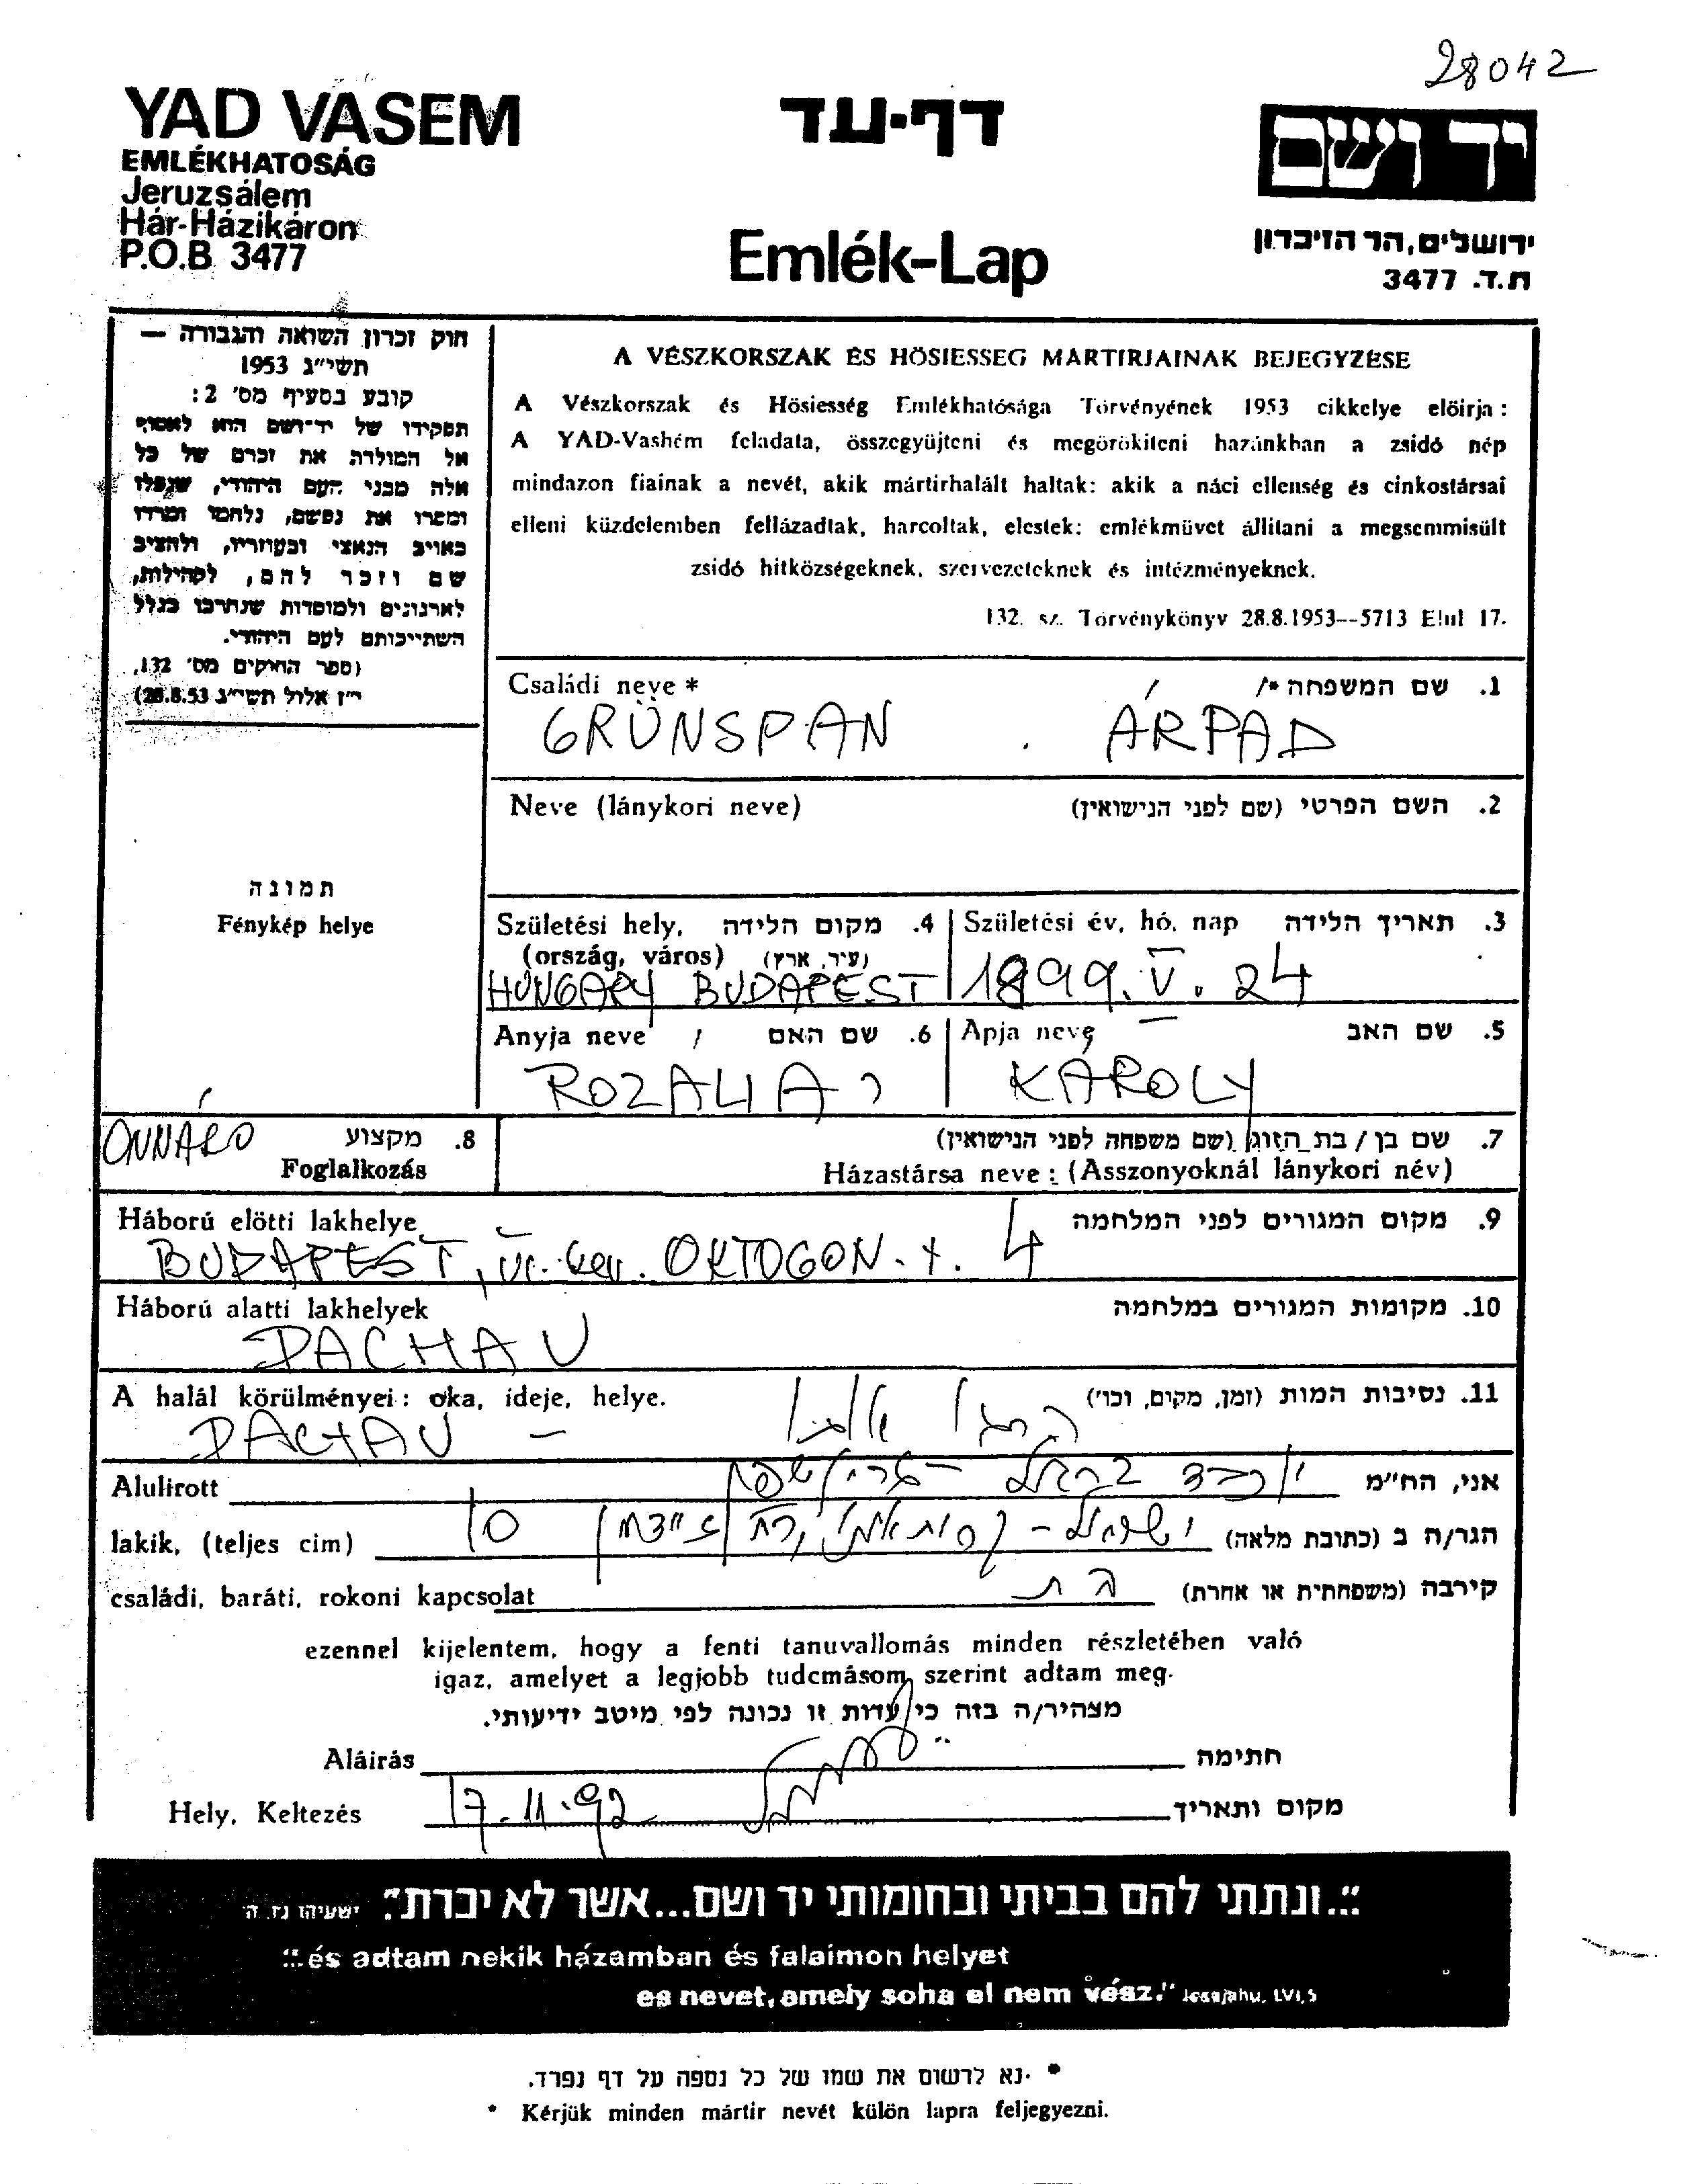 28042
YAD VASEM
EMLÉKHATOSÁG
Jeruzsálem
Hár-Házikáron
P.O.B. 3477
דף-עד
Emlék-Lap
יד ושם
ירושלים, הר הזיכרון
ת.ד. 3477
חוק זכרון השואה והגבורה —
תשי״ג 1953
קובע בסעיף מס' 2:
תפקידו של יד-ושם הוא לאסוף
אל המולדת את זכרם של כל
אלה מבני העם היהודי, שנפלו
ומסרו את נפשם, נלחמו ומרדו
באויב הנאצי ובעוזריו, ולהציב
שם וזכר להם, לקהילות,
לארגונים ולמוסדות שנחרבו בגלל
השתייכותם לעם היהודי.
(ספר החוקים מס' 132,
י״ז אלול תשי״ג 28.8.53)
A VÉSZKORSZAK ÉS HÖSIESSEG MARTIRJAINAK BEJEGYZÉSE
A Vészkorszak és Hösiesség Emlékhatósága Törvényének 1953 cikkelye elöirja:
A YAD-Vashém feladata, összegyüjteni és megörökiteni hazánkban a zsidó nép
mindazon fiainak a nevét, akik mártirhalált haltak: akik a náci ellenség és cinkostársai
elleni küzdelemben fellázadtak, harcoltak, elestek: emlékmüvet állitani a megsemmisült
zsidó hitközségeknek, szervezeteknek és intézményeknek.
132. sz. Törvénykönyv 28.8.1953--5713 Elul 17.
Családi neve * 1. שם המשפחה */
GRÜNSPAN ÁRPAD
Neve (lánykori neve) 2. השם הפרטי (שם לפני הנישואין)
תמונה
Fénykép helye
Születési hely, 4. מקום הלידה
(ország, város) (עיר, ארץ)
HUNGARY BUDAPEST
Születési év, hó, nap 3. תאריך הלידה
1899. V. 24
Anyja neve 6. שם האם
ROZALIA
Apja neve 5. שם האב
KÁROLY
8. מקצוע
Foglalkozás
7. שם בן / בת הזוג (שם משפחה לפני הנישואין)
Házastársa neve: (Asszonyoknál lánykori név)
Háború elötti lakhelye 9. מקום המגורים לפני המלחמה
BUDAPEST, VI. ker. OKTOGON. t. 4
Háború alatti lakhelyek 10. מקומות המגורים במלחמה
DACHAU
A halál körülményei: oka, ideje, helye. 11. נסיבות המות (זמן, מקום, וכו')
DACHAU –
Alulirott אני, הח״מ
lakik, (teljes cim) הגר/ה ב (כתובת מלאה)
ישראל - 10
családi, baráti, rokoni kapcsolat קירבה (משפחתית או אחרת)
בת
ezennel kijelentem, hogy a fenti tanuvallomás minden részletében való
igaz, amelyet a legjobb tudcmásom szerint adtam meg.
מצהיר/ה בזה כי עדות זו נכונה לפי מיטב ידיעותי.
Aláirás חתימה
Hely, Keltezés 17-11-92 מקום ותאריך
"...ונתתי להם בביתי ובחומותי יד ושם...אשר לא יכרת" ישעיהו נו, ה
"...és adtam nekik házamban és falaimon helyet
es nevet, amely soha el nem vész." Jesajahu, LVI,5
* נא לרשום את שמו של כל נספה על דף נפרד.
* Kérjük minden mártir nevét külön lapra feljegyezni.